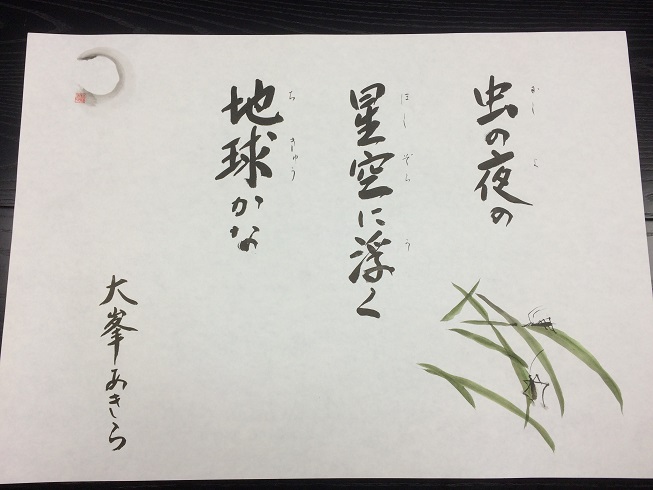 虫の夜の
むし よ
星空に浮く
ほしぞら う
地球かな
ちきゅう
大峯あきら